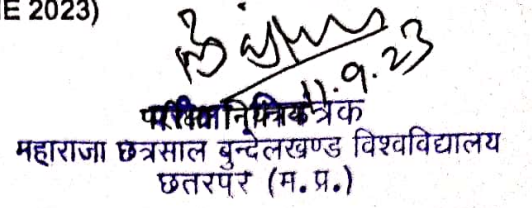 E 2023)
11.9.23
महाराजा छत्रसाल बुन्देलखण्ड विश्वविद्यालय
छतरपुर (म.प्र.)